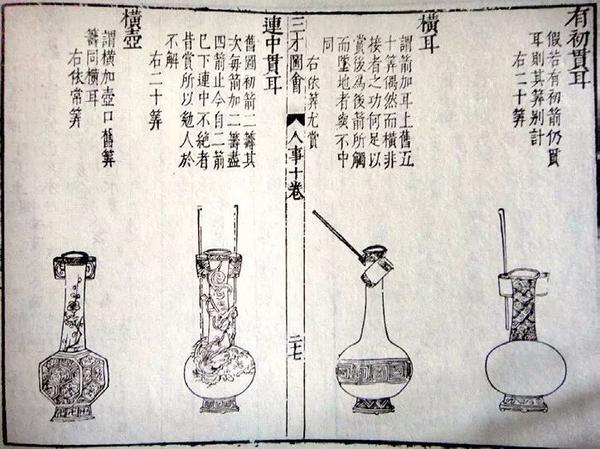 有初貫耳
假若有初箭仍貫
耳則其筭別計
右二十筭
橫耳
謂箭加耳上舊五
十筭偶然而橫非
接者之功何足以
賞後為後箭所觸
而墜地者與不中
同
右依筭尤賞
三才圖會
人事十卷
二十七
連中貫耳
舊圖初箭二籌其
次每箭加二籌盡
四箭止今自二箭
已下連中不絶者
皆賞所以勉人於
不解
右二十筭
橫壺
謂橫加壺口舊筭
籌同橫耳
右依常筭